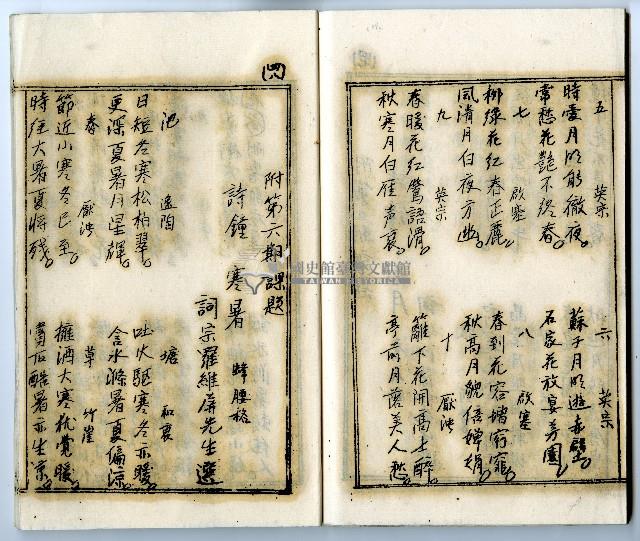 五 英宗
時雲月明能徹夜
常愁花艷不終春
六 英宗
蘇子月明遊赤壁
石家花放宴芳園
七 啟塞
柳綠花紅春正麗
風清月白夜方幽
八 啟塞
春到花容增窈窕
秋高月貌倍嬋娟
九 英宗
春暖花紅鶯語滑
秋寒月白雁声哀
十
籬下花開高士醉
亭前月落美人愁
附第六期課題
詩鐘 寒暑 蜂腰格
詞宗羅維屏先生選
池 逸陶
日短冬寒松柏翠
更深夏暑月星輝
塘 和
吐火驅寒冬亦暖
含水滌暑夏偏涼
春
節近小寒冬已至
時經大暑夏將殘
草 竹崖
擁酒大寒犹覺暖
酷暑亦生涼
國史館臺灣文獻館
TAIWAN HISTORICA